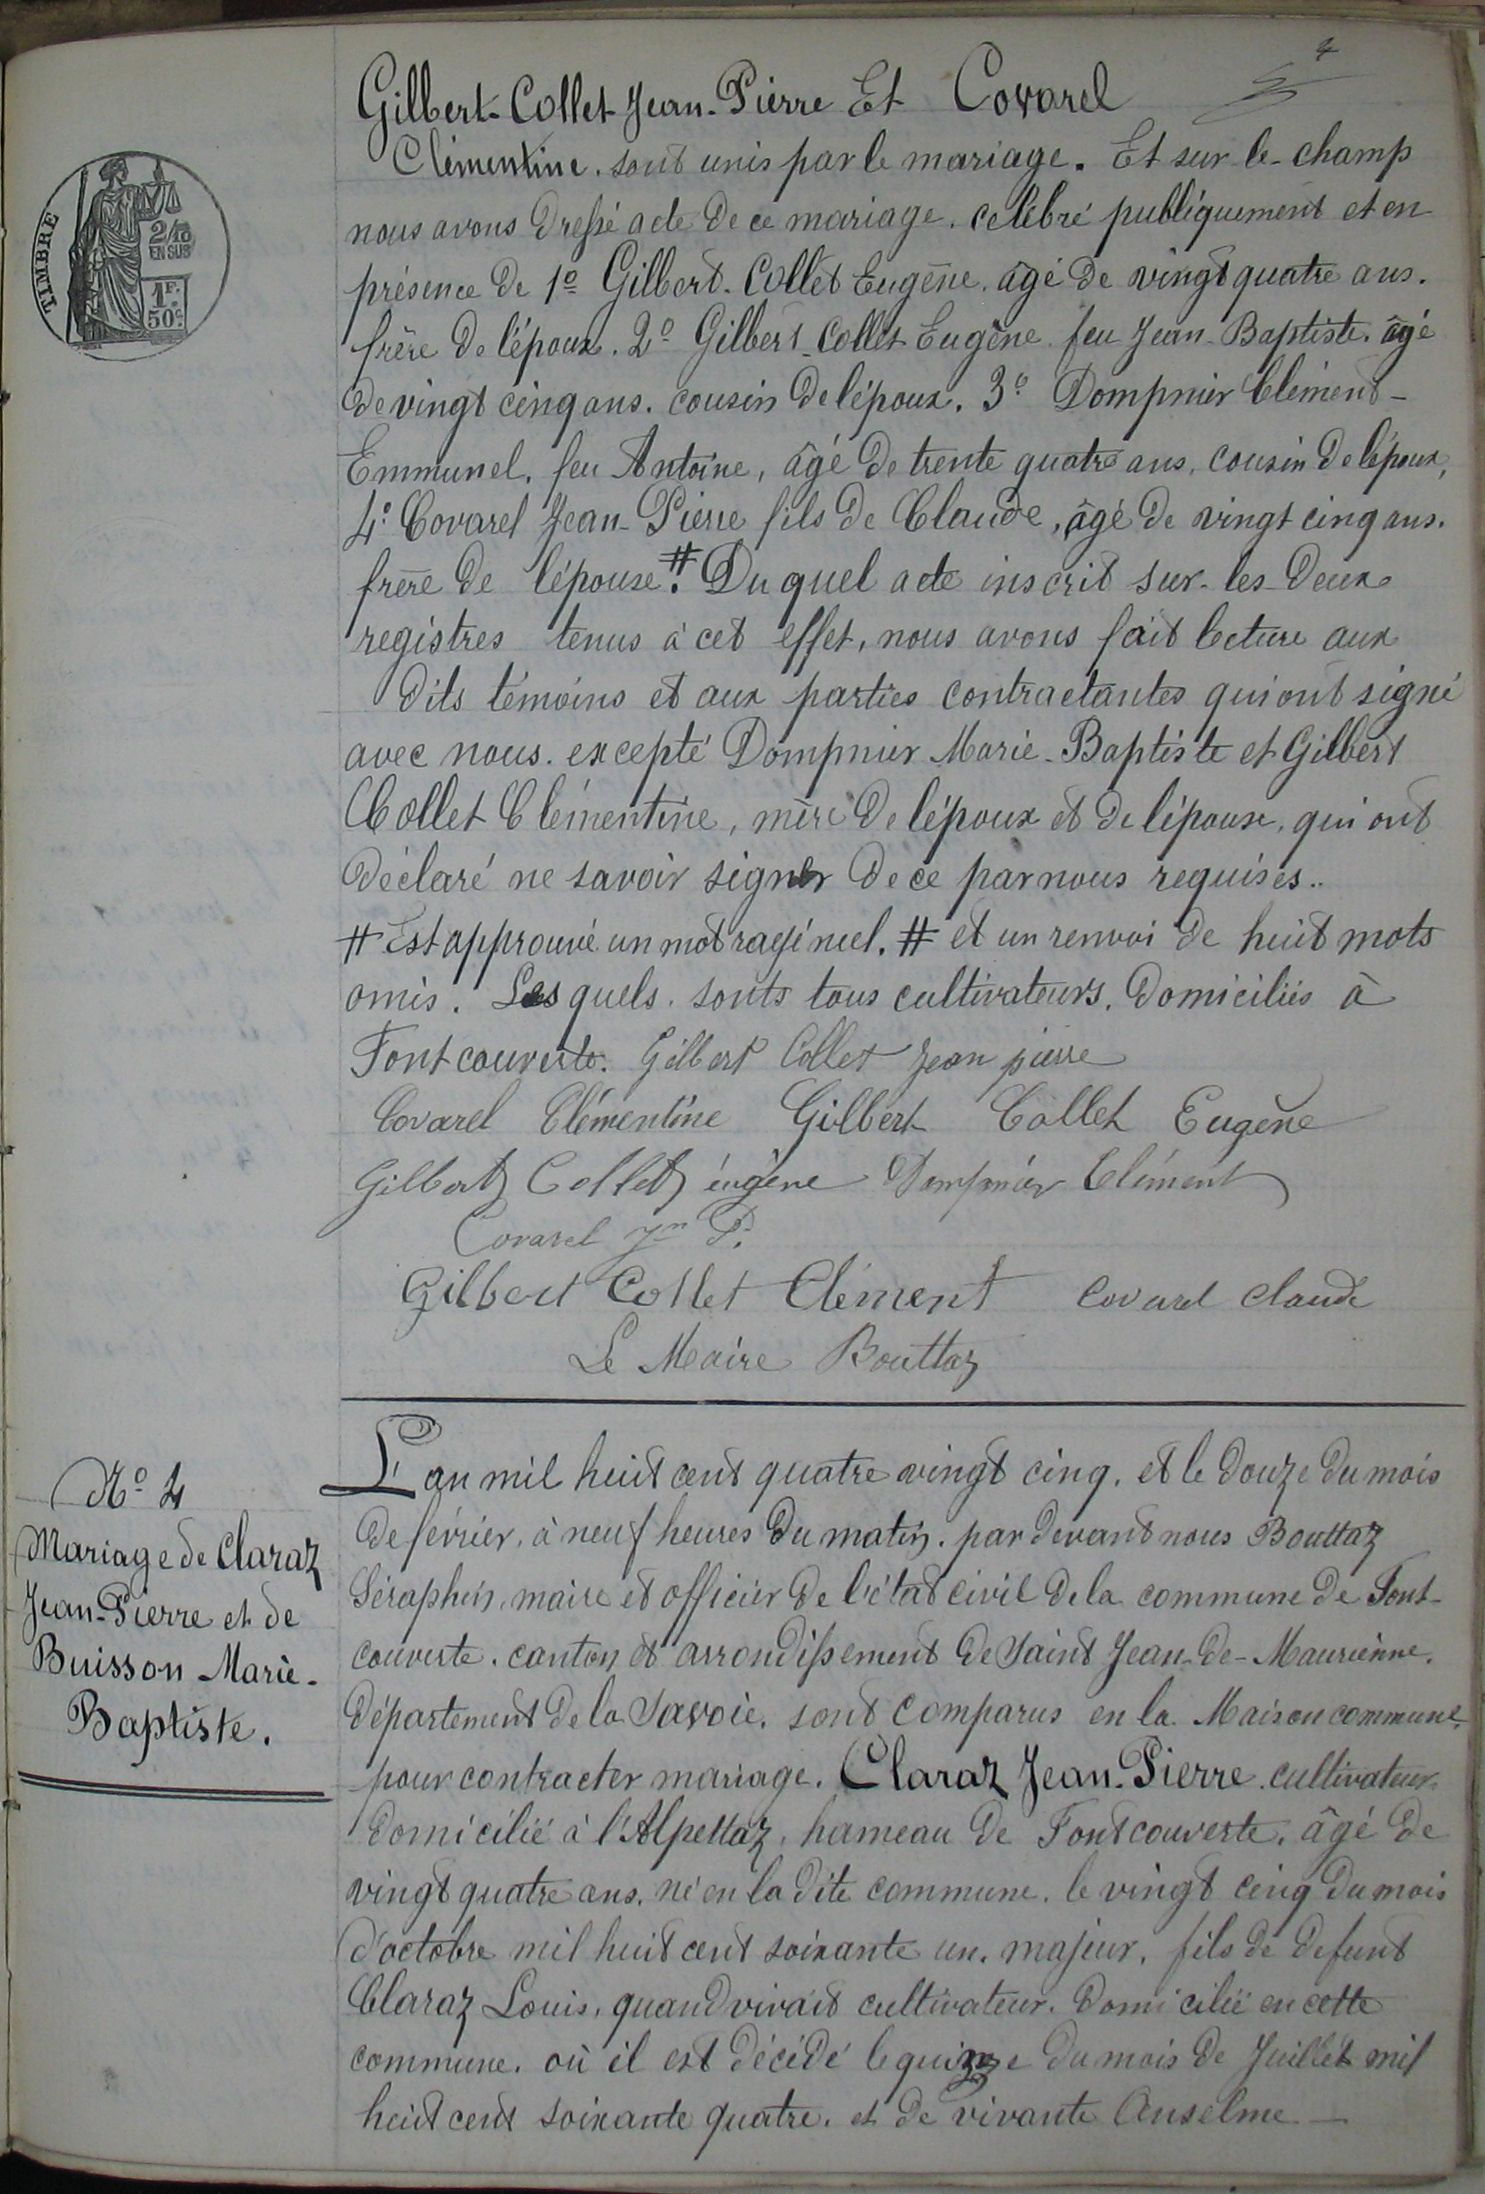 4
Gilbert-Collet Jean-Pierre Et Covarel
Clémentine. sont unis par le mariage. Et sur-le-champ
nous avons dressé acte de ce mariage. celébré publiquement et en
présence de 1º Gilbert-Collet Eugène. âgé de vingt quatre ans.
frère de l'époux. 2º Gilbert-Collet Eugène feu Jean-Baptiste. âgé
de vingt cinq ans. cousin de l'époux. 3º Dompnier Clément-
Emmunel, feu Antoine, âgé de trente quatre ans, cousin de l'époux,
4º Covarel Jean-Pierre fils de Claude, âgé de vingt cinq ans.
frère de l'épouse #. Du quel acte inscrit sur-les-deux
registres tenus à cet effet, nous avons fait lecture aux
dits témoins et aux parties contractantes qui ont signé
avec nous. excepté Dompnier Marie-Baptiste et Gilbert
Collet Clémentine, mère de l'époux et de l'épouse, qui ont
déclaré ne savoir signer de ce par nous requises..
# Est approuvé un mot rayé nul. # et un renvoi de huit mots
omis. Les quels. sonts tous cultivateurs. domiciliés à
Fontcouverte. Gilbert Collet Jean pierre
Covarel Clémentine Gilbert Collet Eugène
Gilbert Collet éugène Dompnier Clément
Covarel Jn P.
Gilbert Collet Clément Covarel Claude
Le Maire Bouttaz
TIMBRE
2/10
EN SUS
1F.
50c.
Nº 4
Mariage de Claraz
Jean-Pierre et de
Buisson Marie-
Baptiste.
L'an mil huit cent quatre vingt cinq. et le douze du mois
de février, à neuf heures du matin. par devant nous Bouttaz
Séraphin, maire et officier de l'état civil de la commune de Font-
couverte. canton et arrondissement de Saint Jean-de-Maurienne.
département de la Savoie. sont comparus en la Maison commune.
pour contracter mariage. Claraz Jean-Pierre. cultivateur
domicilié à l'Alpettaz, hameau de Fontcouverte. âgé de
vingt quatre ans. né en la dite commune. le vingt cinq du mois
d'octobre mil huit cent soixante un. majeur. fils de defunt
Claraz Louis, quand vivait cultivateur. domicilié en cette
commune. où il est décédé le quinze du mois de Juillet mil
huit cent soixante quatre. et de vivante Anselme